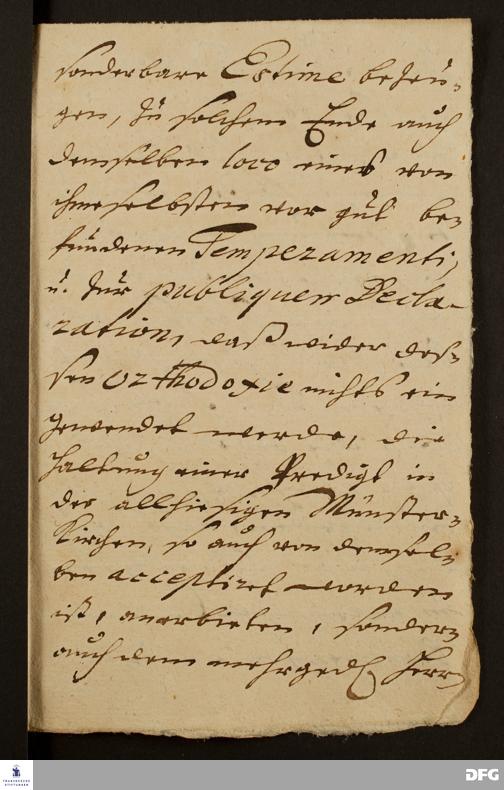 sonderbare Estime bezeü-
gen, zü solchem Ende auch
demselben loco eines von
ihme selbsten vor güt be-
fundenen Temperamenti,
ü. zür publiquen Decla-
ration, daß wider des-
sen Orthodoxie nichts ein
gewendet werde, die
Haltung einer Predigt in
der allhiesigen Münster-
Kirchen, so auch von demsel-
ben acceptiret worden
ist, anerbieten, sondern
auch dem mehrged. Herrn
FRANCKESCHE
STIFTUNGEN
DFG